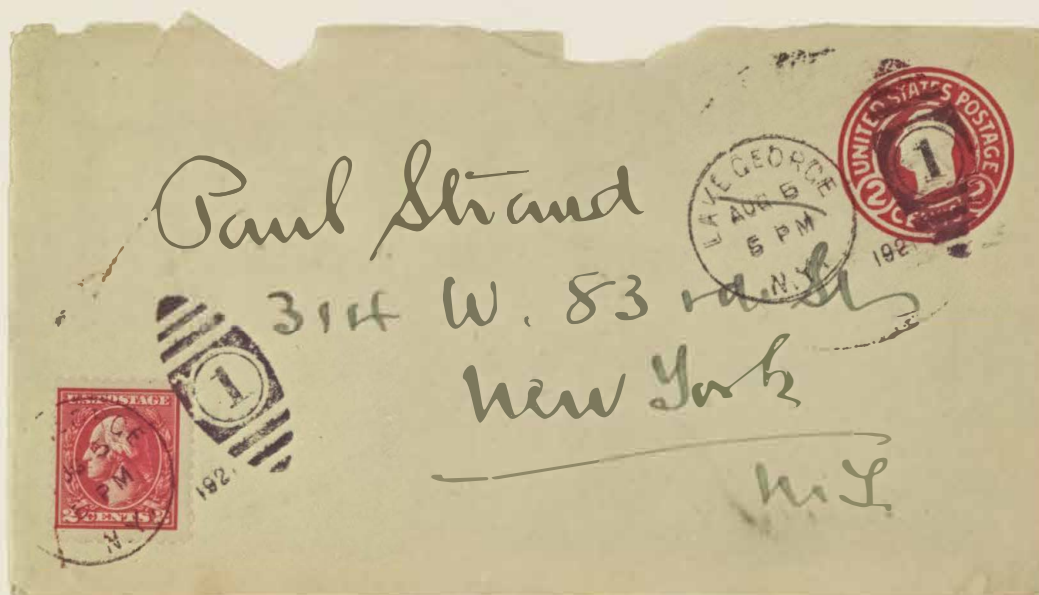 UNITED STATES POSTAGE
2 2
1
LAKE GEORGE
AUG 5
5 PM
N.Y.
192
Paul Strand
314 W. 83 rd. St
New York
N.Y.
1
192
U.S. POSTAGE
2 CENTS 2
5
PM
N.Y.